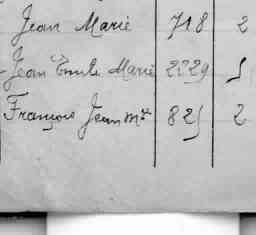 Jean Marie 718 2
Jean Emile Marie 2229 5
François Jean M^ie 825 2